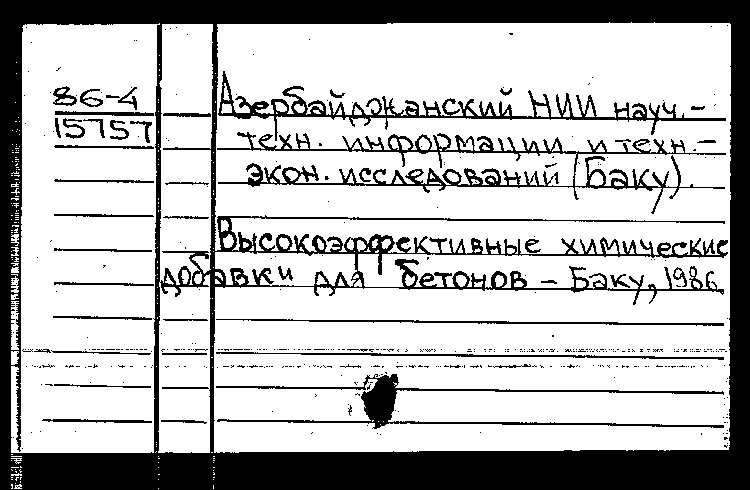 86-4
15757
Азербайджанский НИИ науч.-
техн. информации и техн.-
экон. исследований (Баку).
Высокоэффективные химические
добавки для бетонов - Баку, 1986.